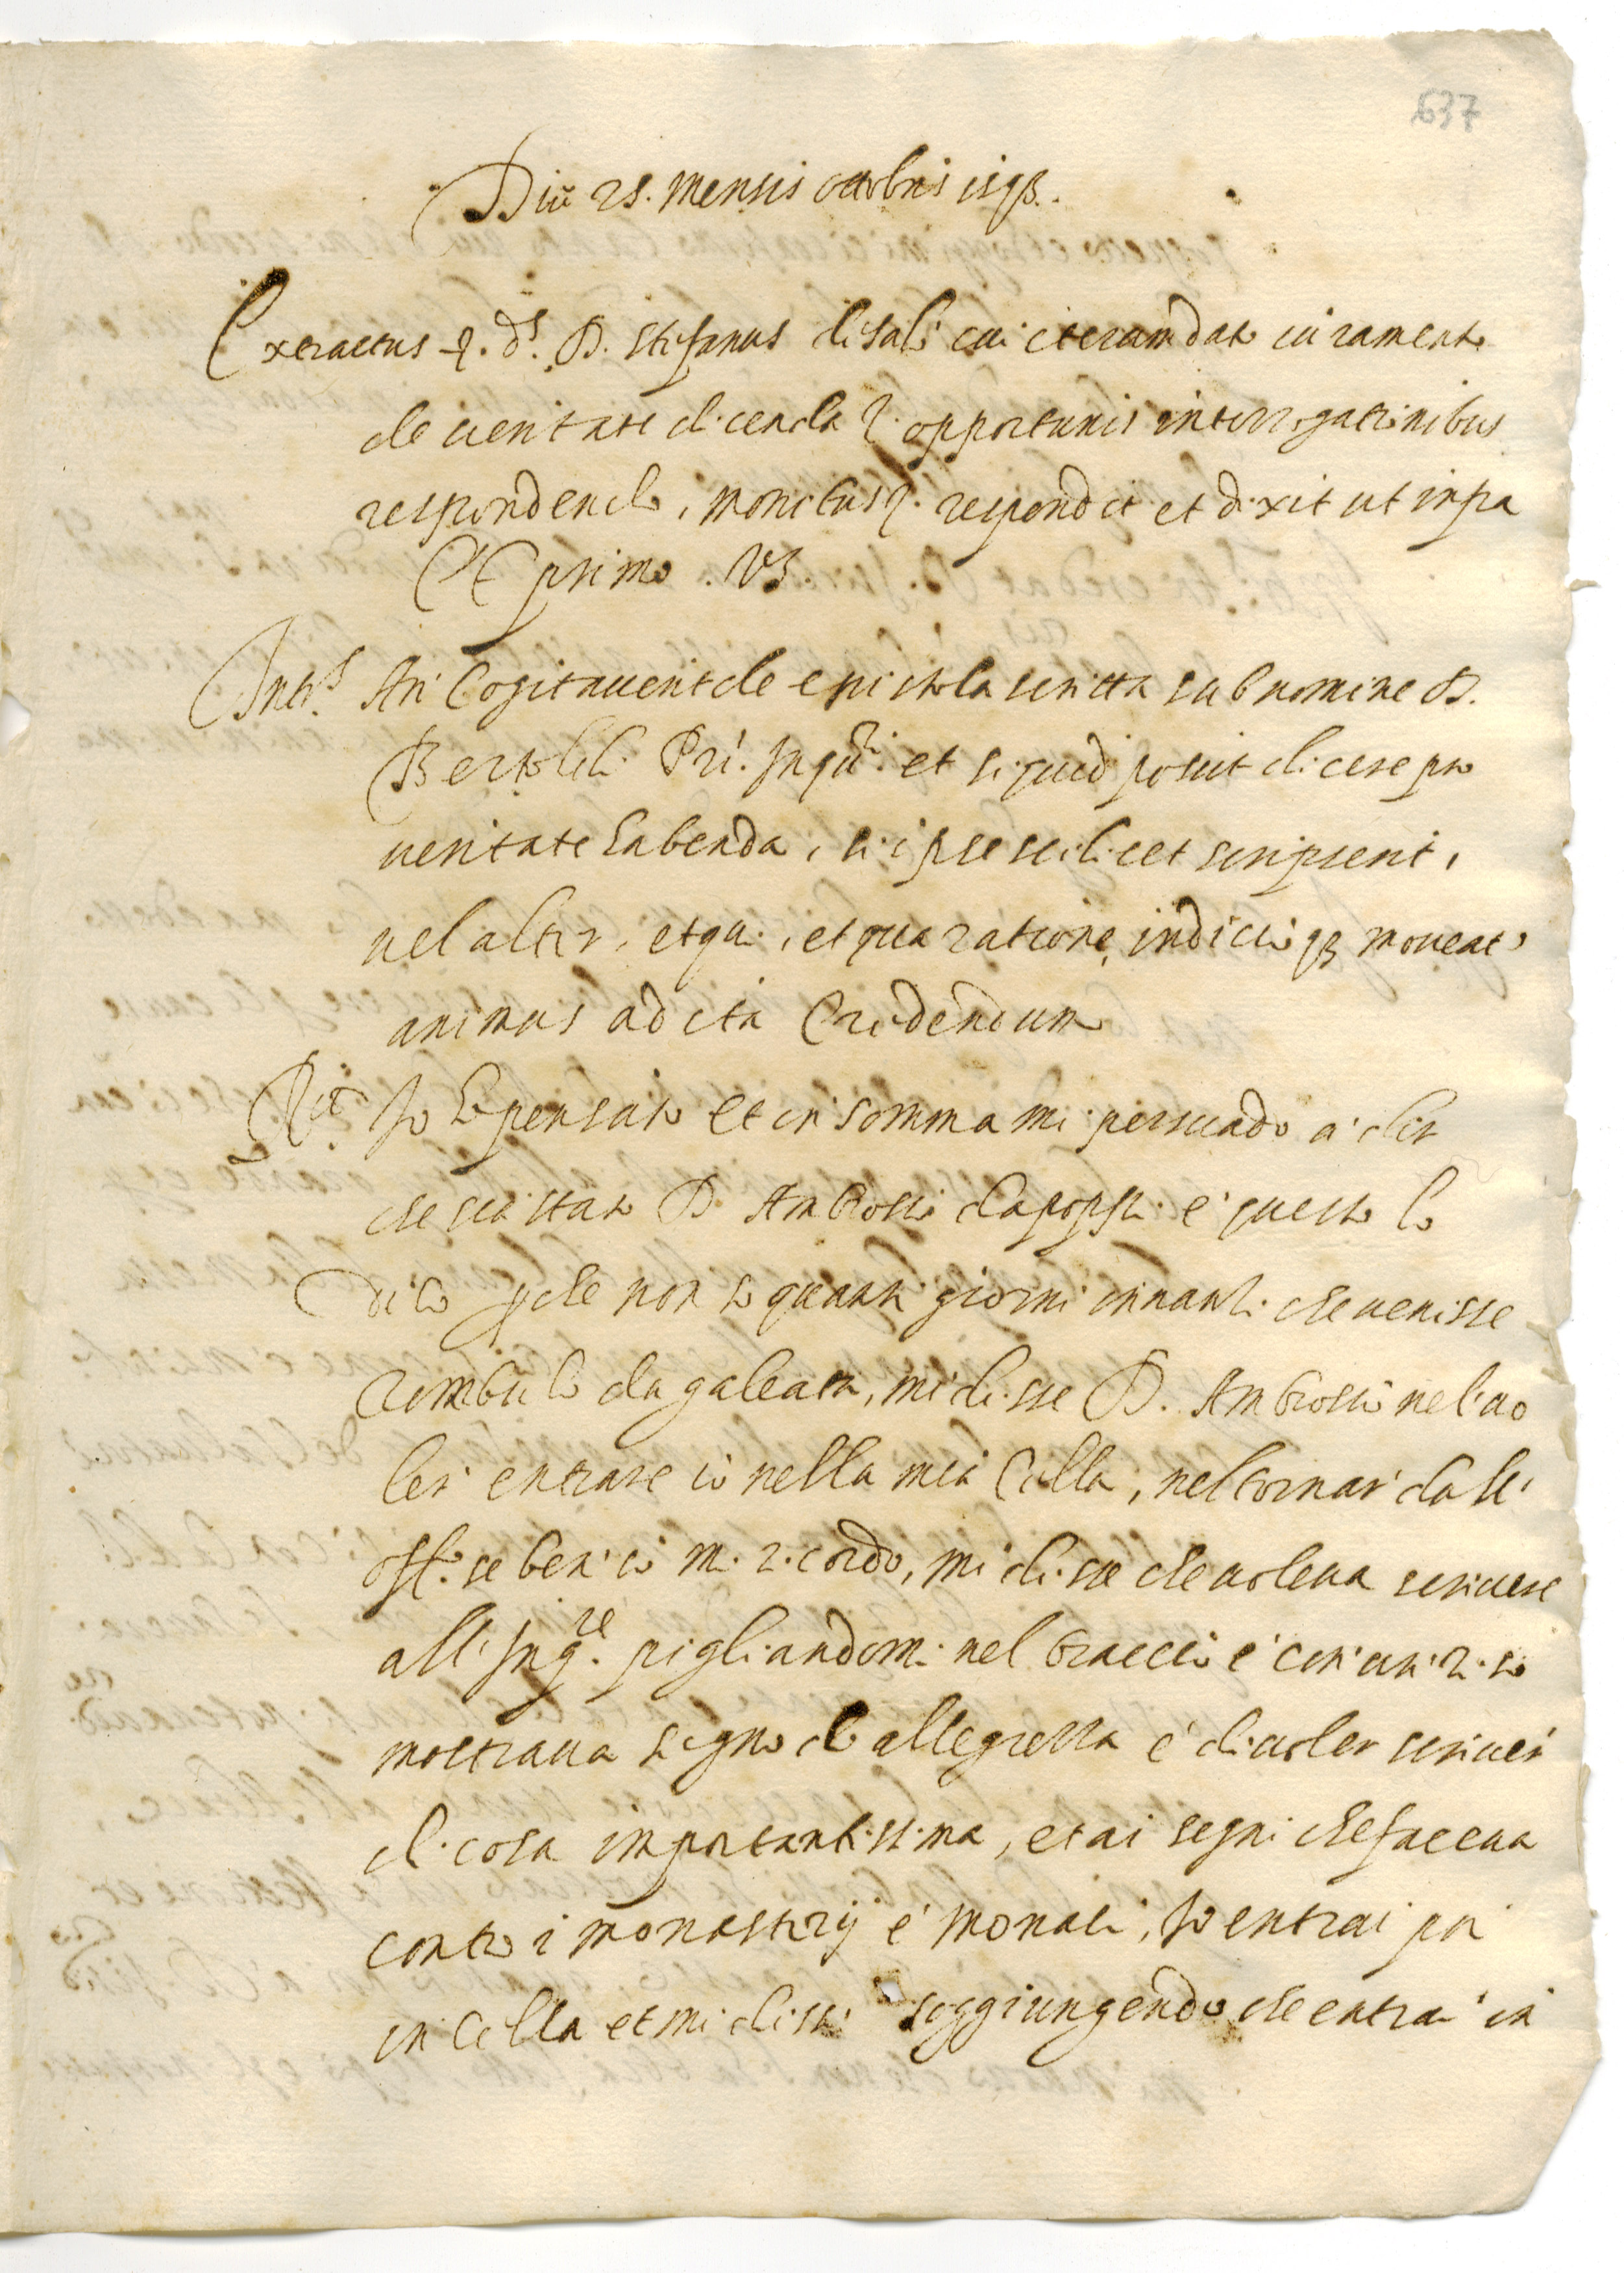 637
Die 25. mensis octobris 159
Extractus D. Stefanus cui iterum dato iuramento
de veritate dicenda opportunis interrogationibus
respondendo, monitus respondit et dixit ut infra
Et primo.
An Cogitaverit de epistola scritta sub nomine D.
Bertoldi et siquid possit dicere pro
veritate habenda, si ipse scilicet scripserit,
vel alter, et qui, et qua ratione, indicijsq moveat
animus ad ita Credendum
Io ho pensato et in somma mi persuado a' dir
che sia stato D Ambrosio e' questo lo
dico che non so quanti giorni innanti che venisse
da galeata, mi disse D. Ambrosio nel vo
ler entrare io nella mia Cella, nel tornar dall'
se ben io mi ricordo, mi disse che voleva scrivere
all' Inq.re pigliandomi nel braccio e' con un riso
mostrava segno di allegrezza e' di voler scriver
di cosa importantissima, et ai segni che faceva
contro i monasterij e' monaci, Io entrai poi
in Cella et mi disse soggiungendo che entrai in